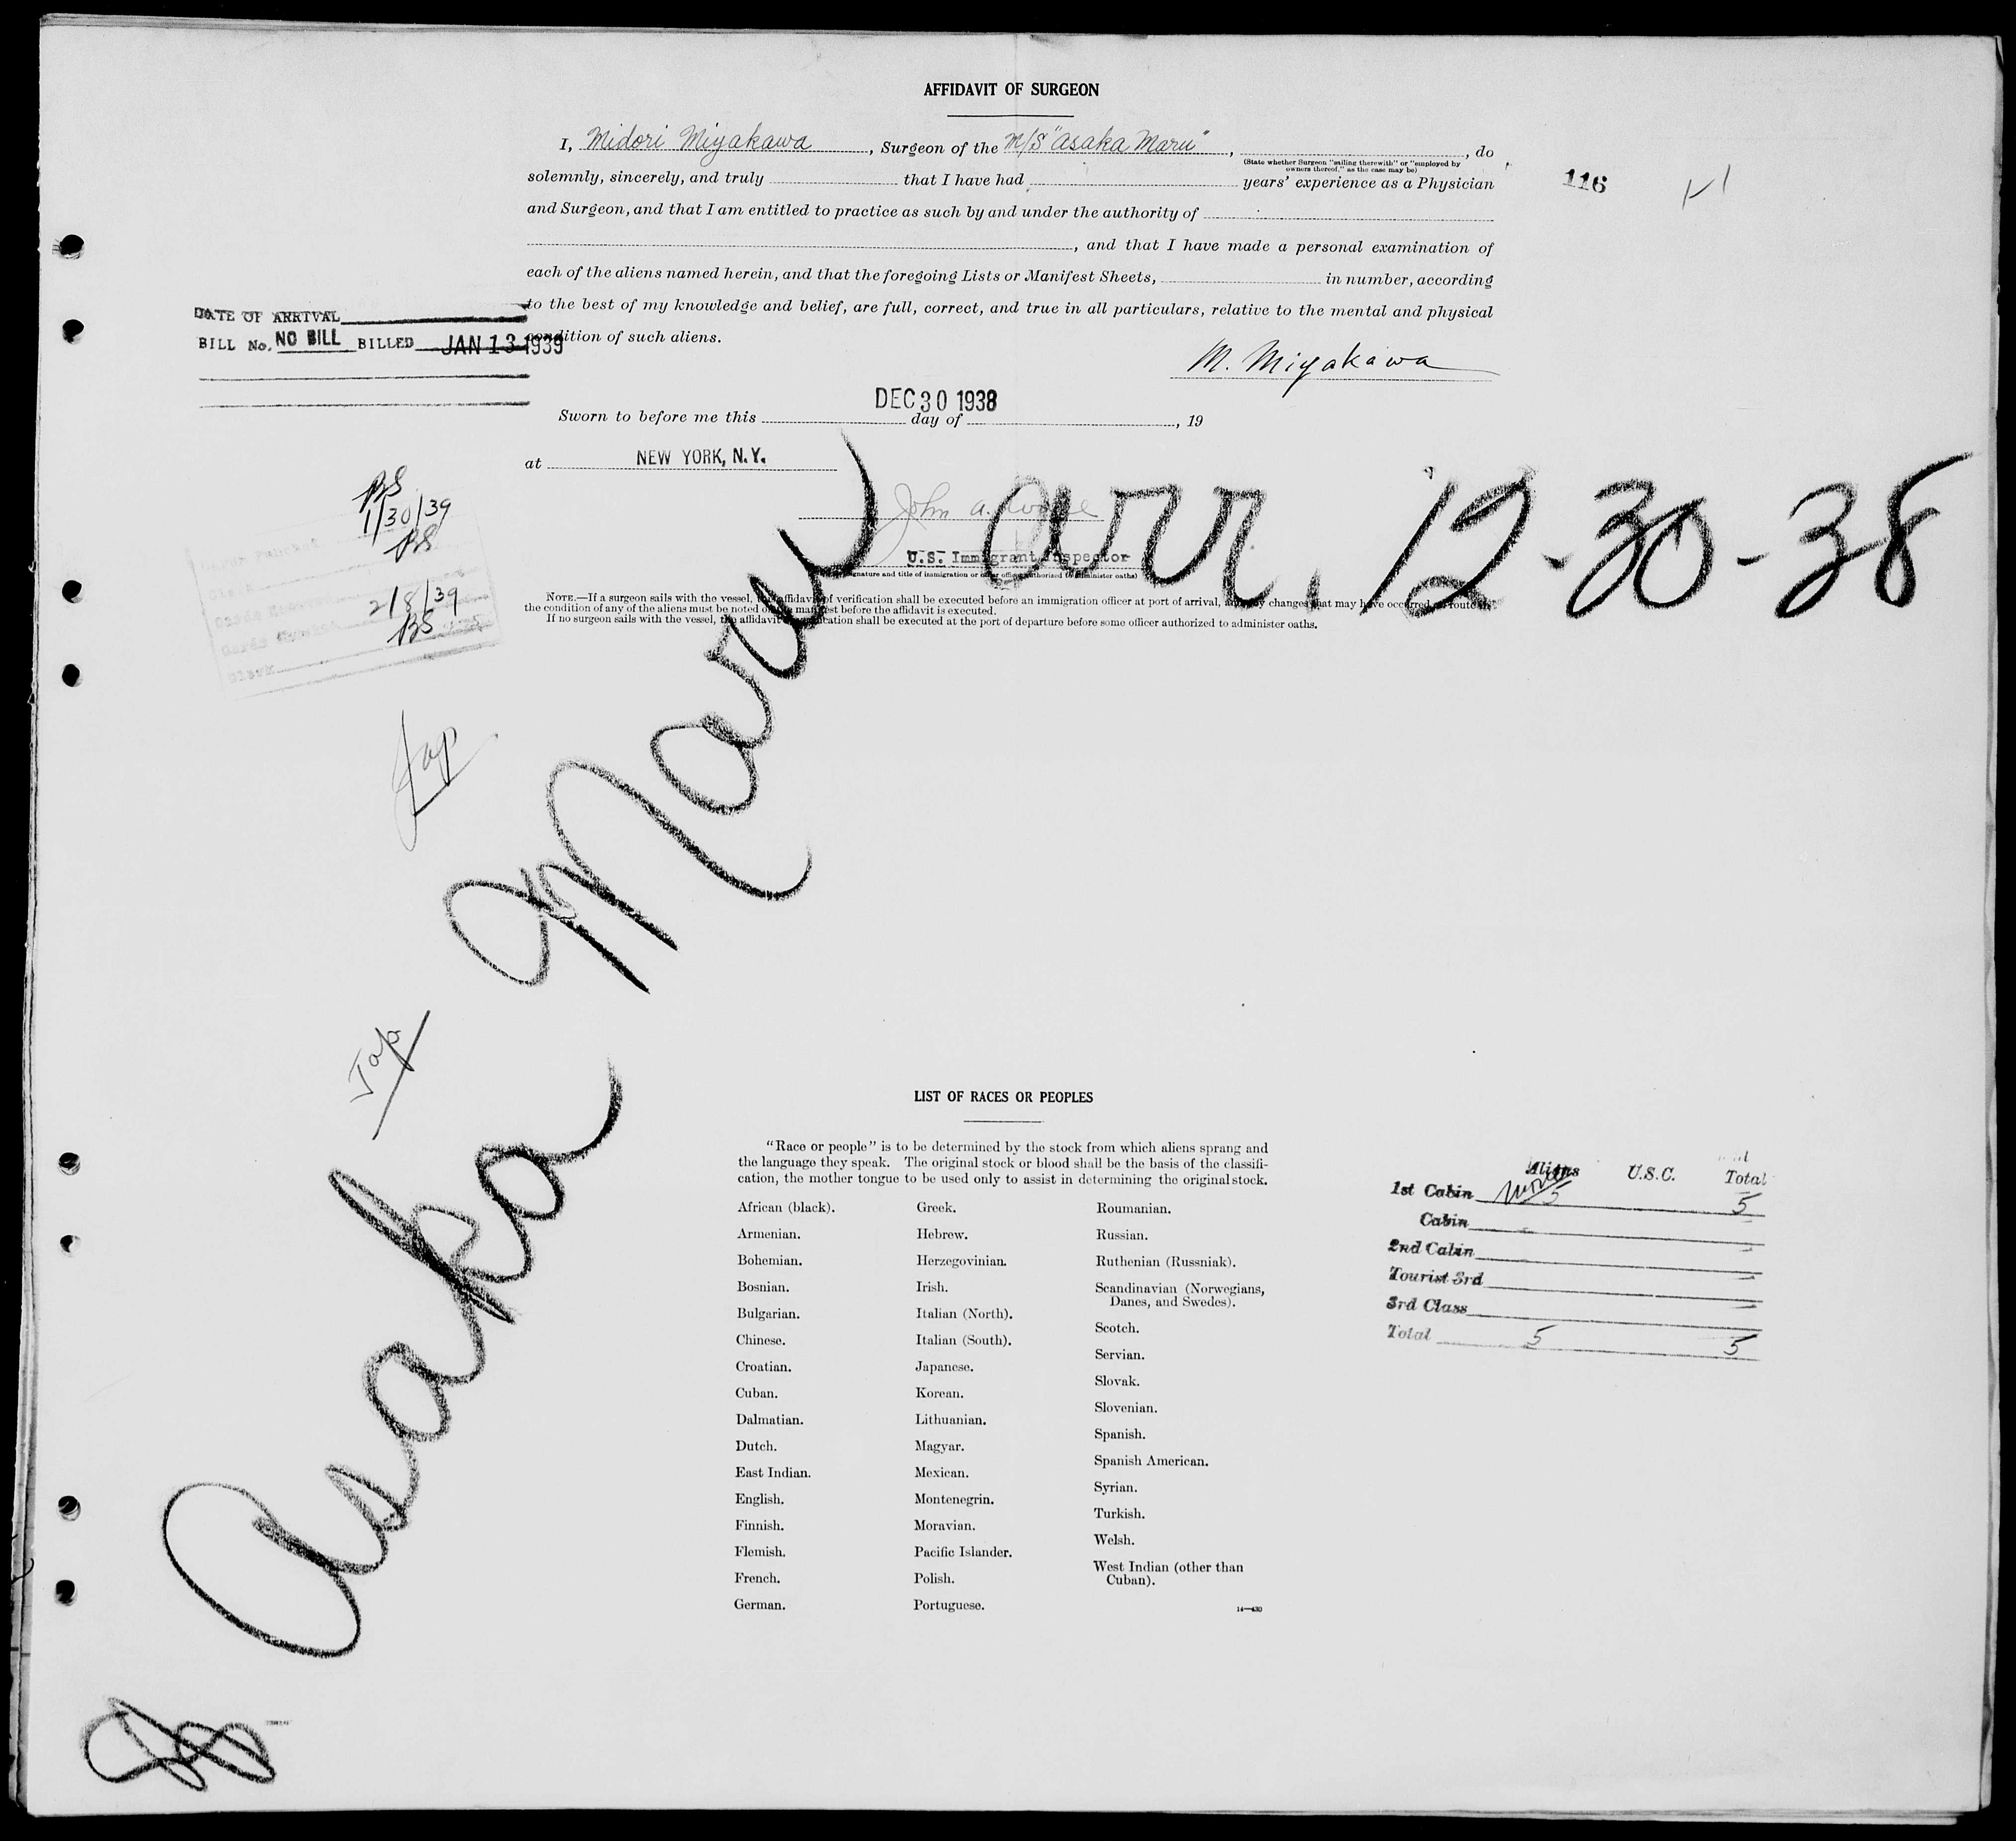 AFFIDAVIT OF SURGEON
I, Midori Miyakawa, Surgeon of the M/S "Asaka Maru", , do
(State whether Surgeon "sailing therewith" or "employed by
owners thereof," as the case may be)
solemnly, sincerely, and truly that I have had years' experience as a Physician
116
and Surgeon, and that I am entitled to practice as such by and under the authority of
, and that I have made a personal examination of
each of the aliens named herein, and that the foregoing Lists or Manifest Sheets, in number, according
to the best of my knowledge and belief, are full, correct, and true in all particulars, relative to the mental and physical
condition of such aliens.
DATE OF ARRIVAL
BILL No. NO BILL BILLED JAN 13 1939
M. Miyakawa
DEC 30 1938
Sworn to before me this day of , 19
at NEW YORK, N.Y.
John A.
U.S. Immigrant Inspector
(Signature and title of immigration or other officer authorized to administer oaths)
NOTE.—If a surgeon sails with the vessel, this affidavit of verification shall be executed before an immigration officer at port of arrival, and any changes that may have occurred en route in
the condition of any of the aliens must be noted on the manifest before the affidavit is executed.
If no surgeon sails with the vessel, the affidavit of verification shall be executed at the port of departure before some officer authorized to administer oaths.
BS
1/30/39
BS
2/8/39
BS
Clerk
Jap
Jap
Asaka Maru arr. 12-30-38
LIST OF RACES OR PEOPLES
"Race or people" is to be determined by the stock from which aliens sprang and
the language they speak. The original stock or blood shall be the basis of the classifi-
cation, the mother tongue to be used only to assist in determining the original stock.
African (black).
Armenian.
Bohemian.
Bosnian.
Bulgarian.
Chinese.
Croatian.
Cuban.
Dalmatian.
Dutch.
East Indian.
English.
Finnish.
Flemish.
French.
German.
Greek.
Hebrew.
Herzegovinian.
Irish.
Italian (North).
Italian (South).
Japanese.
Korean.
Lithuanian.
Magyar.
Mexican.
Montenegrin.
Moravian.
Pacific Islander.
Polish.
Portuguese.
Roumanian.
Russian.
Ruthenian (Russniak).
Scandinavian (Norwegians,
Danes, and Swedes).
Scotch.
Servian.
Slovak.
Slovenian.
Spanish.
Spanish American.
Syrian.
Turkish.
Welsh.
West Indian (other than
Cuban).
14—430
Aliens U.S.C. Total
1st Cabin 5 5
Cabin - -
2nd Cabin -
Tourist 3rd -
3rd Class -
Total 5 5